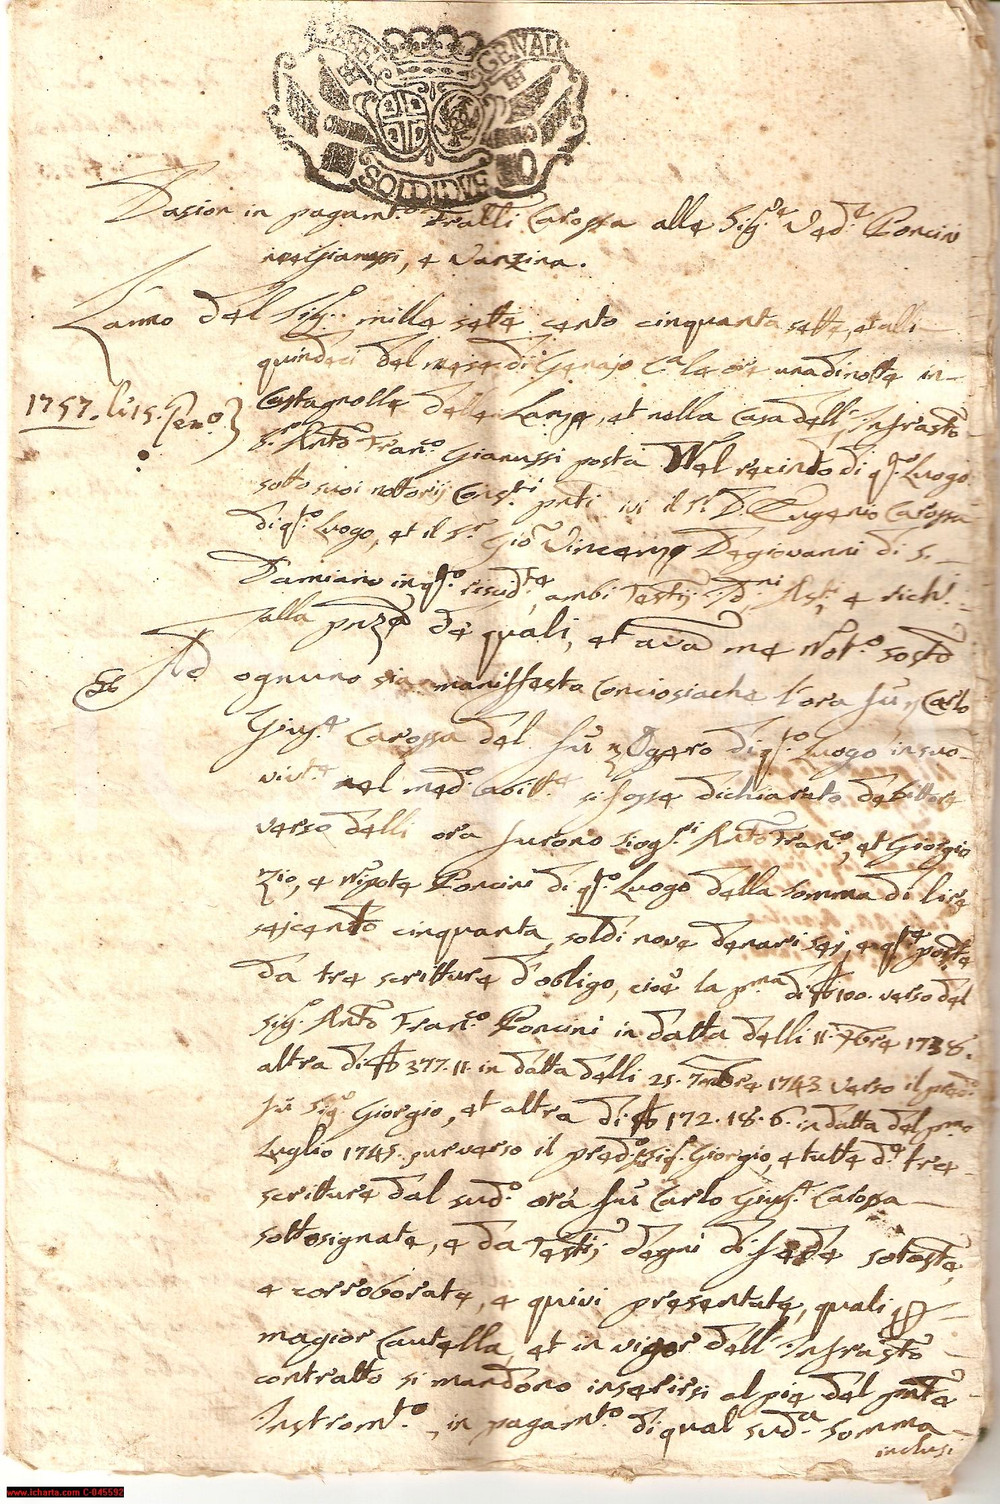 GABEL GENVALE
SOLDI DVE
Dasion in pagam.to Fratelli Carossa alle Sig.re Ved.e Poncini
Gianussi, e Vanzina.
L'anno del Sig.r mille sette cento cinquanta sette, et alli
quindeci del mese di Genajo c.a le ore una di notte in
1757. li 15. Gen.o
Castagnolle delle Lanze, et nella Casa dell' Infrastto
S.r Anto Fran.o Gianussi posta Nel recinto di q.to Luogo
sotto suoi notorij Cons.ti pnti ivi il S.r D. Eugenio Carossa
di q.to Luogo, et il S.r Gio Vincenzo Degiovanni di S.
Damiano in q.to resid.te, ambi Testij Ast.ti e rich.i
alla pnza de quali, et avati me Not.o sostto
Ad ognuno sia maniffesta Conciosiache l'ora fu Carlo
Gius.e Carossa del fu Ogero di q.to Luogo in suo
viv.te nel med.o abitt.e si fosse dichiarato debittore
verso delli ora furono Sig.ri Anto Fran.o, et Giorgio
Zio, e Nipote Poncini di q.to Luogo della somma di lire
sejcento cinquanta, soldi nove denari sej, e q.te portte
da tre scritture d'obligo, cioè la p.ma di ₶ 100. verso del
Sig.r Anto Fran.o Poncini in datta delli 11. 7bre 1738.
altra di ₶ 377.11. in datta delli 21. 7mbre 1743 verso il pred.o
fu Sig.r Giorgio, et altra di ₶ 172.18.6. in datta del p.mo
Luglio 1745. pur verso il pred.o Sig.r Giorgio, e tutte d.e tre
scritture dal sud.o ora fu Carlo Gius.e Carossa
sottosignate, e da Testij degni di fede sotoste,
e corroborate, e quivi presentate, quali p
magior Cautella, et in vigor dell' Infrastto
contratto si mandono inserirsi al pie del pnte
Instrom.to, in pagam.to di qual sud.a somma
inclusi
www.icharta.com C-045592